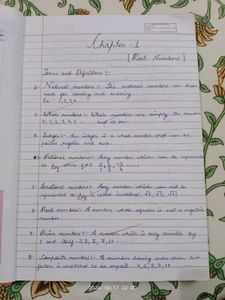 Chapter 1
(Real Numbers)
Terms and Definitions :-
Natural numbers :- The natural numbers are those
used for counting and ordering.
Ex - 1, 2, 3, 4
Whole numbers :- Whole numbers are simply the numbers
0, 1, 2, 3, 4, 5 and so on.
Integer :- An integer is a whole number that can be
positive, negative and zero.
Rational numbers :- Any number which can be represented
as p/q where q≠0
5. Irrational numbers :- Any number which can not be
represented as p/q is called irrational √2, √3, √5
6. Real numbers :- A number whose square is not a negative
number.
7. Prime numbers :- A number which is only divisible by
1 and itself - 2, 3, 5, 7, 11
8. Composite numbers :- A number having more than two
factors is
2024-10-17 22:00